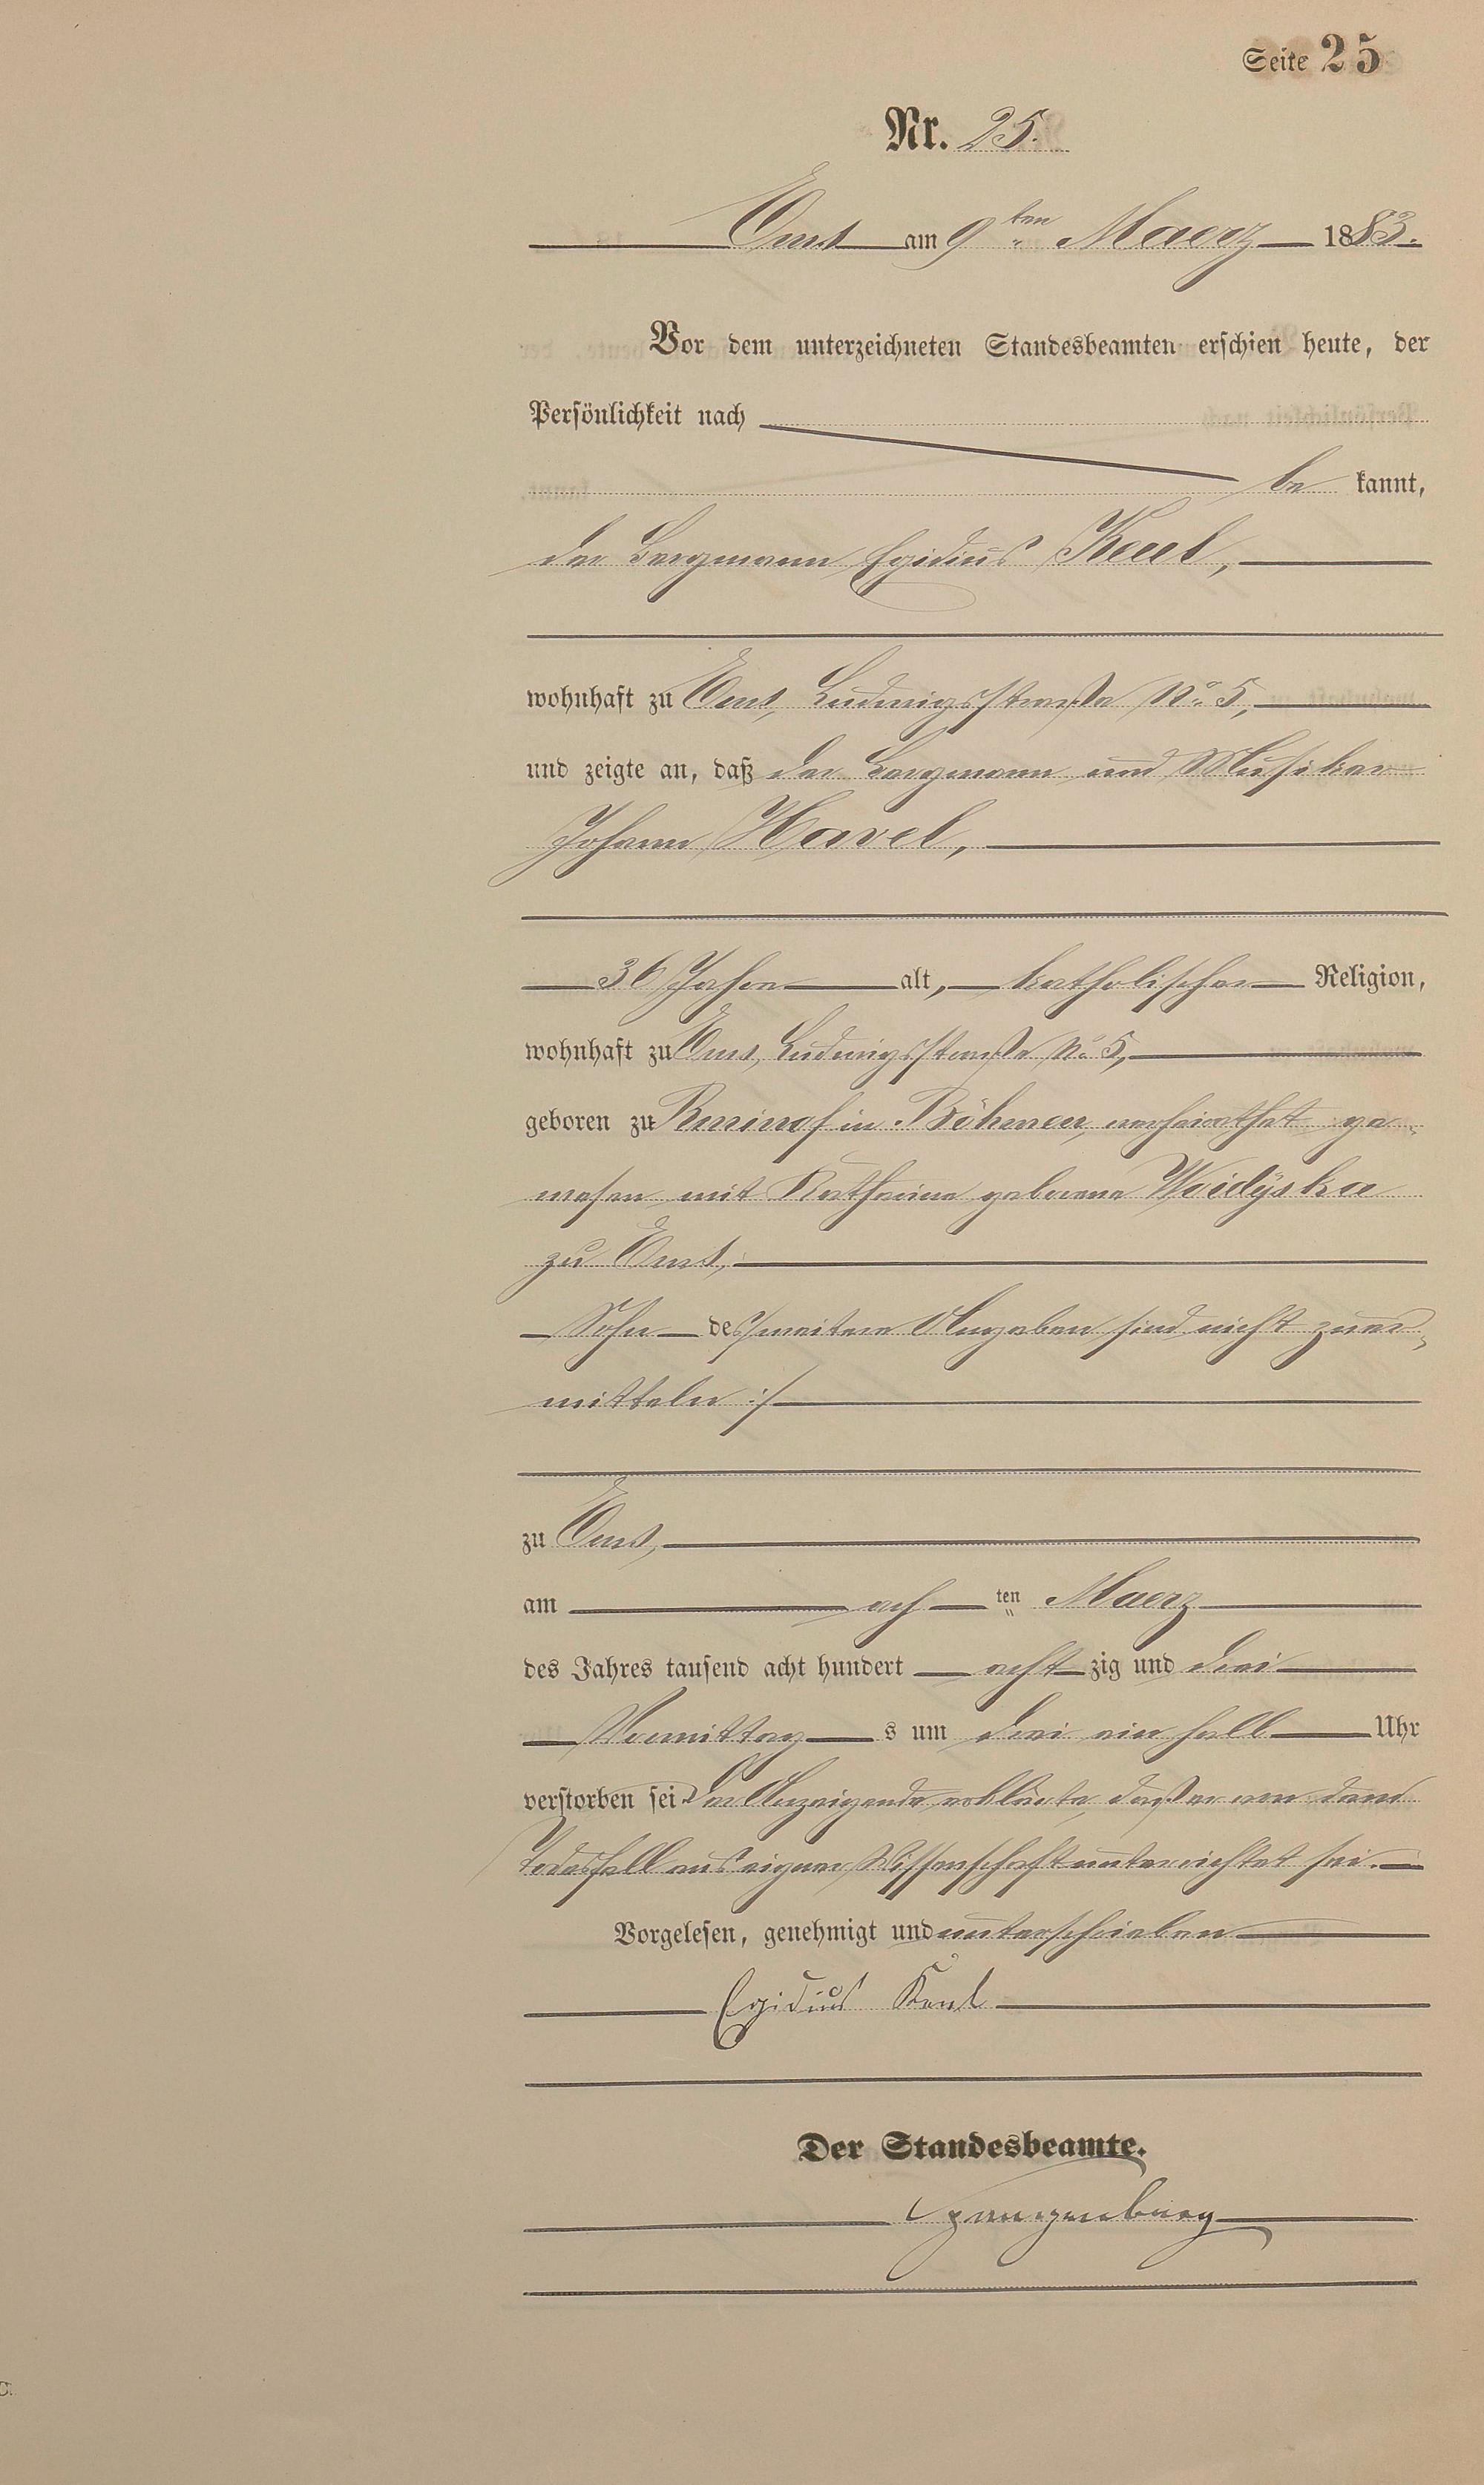 Seite 25
Nr. 25.
Ems am 9ten Maerz 1883.
Vor dem unterzeichneten Standesbeamten erschien heute, der
Persönlichkeit nach
be kannt,
der Bergmann Egidius Keul,
wohnhaft zu Ems, Ludwigsstraße No 5,
und zeigte an, daß der Bergmann und Musiker
Johann Havel,
36 Jahre alt, katholischer Religion,
wohnhaft zu Ems, Ludwigsstraße No 5,
geboren zu in Böhmen, verheirathet ge-
wesen mit Katharina geborene Woidyska
zu Ems,
Sohn des/: weitere Angaben sind nicht zu er-
mitteln :/
zu Ems,
am ach ten Maerz
des Jahres tausend acht hundert acht zig und drei
Vormittag s um drei ein halb Uhr
verstorben sei. Der Anzeigende erklärte, daß er von dem
Todesfall aus eigner Wissenschaft unterrichtet sei.
Vorgelesen, genehmigt und unterschrieben
Egidius Keul
Der Standesbeamte.